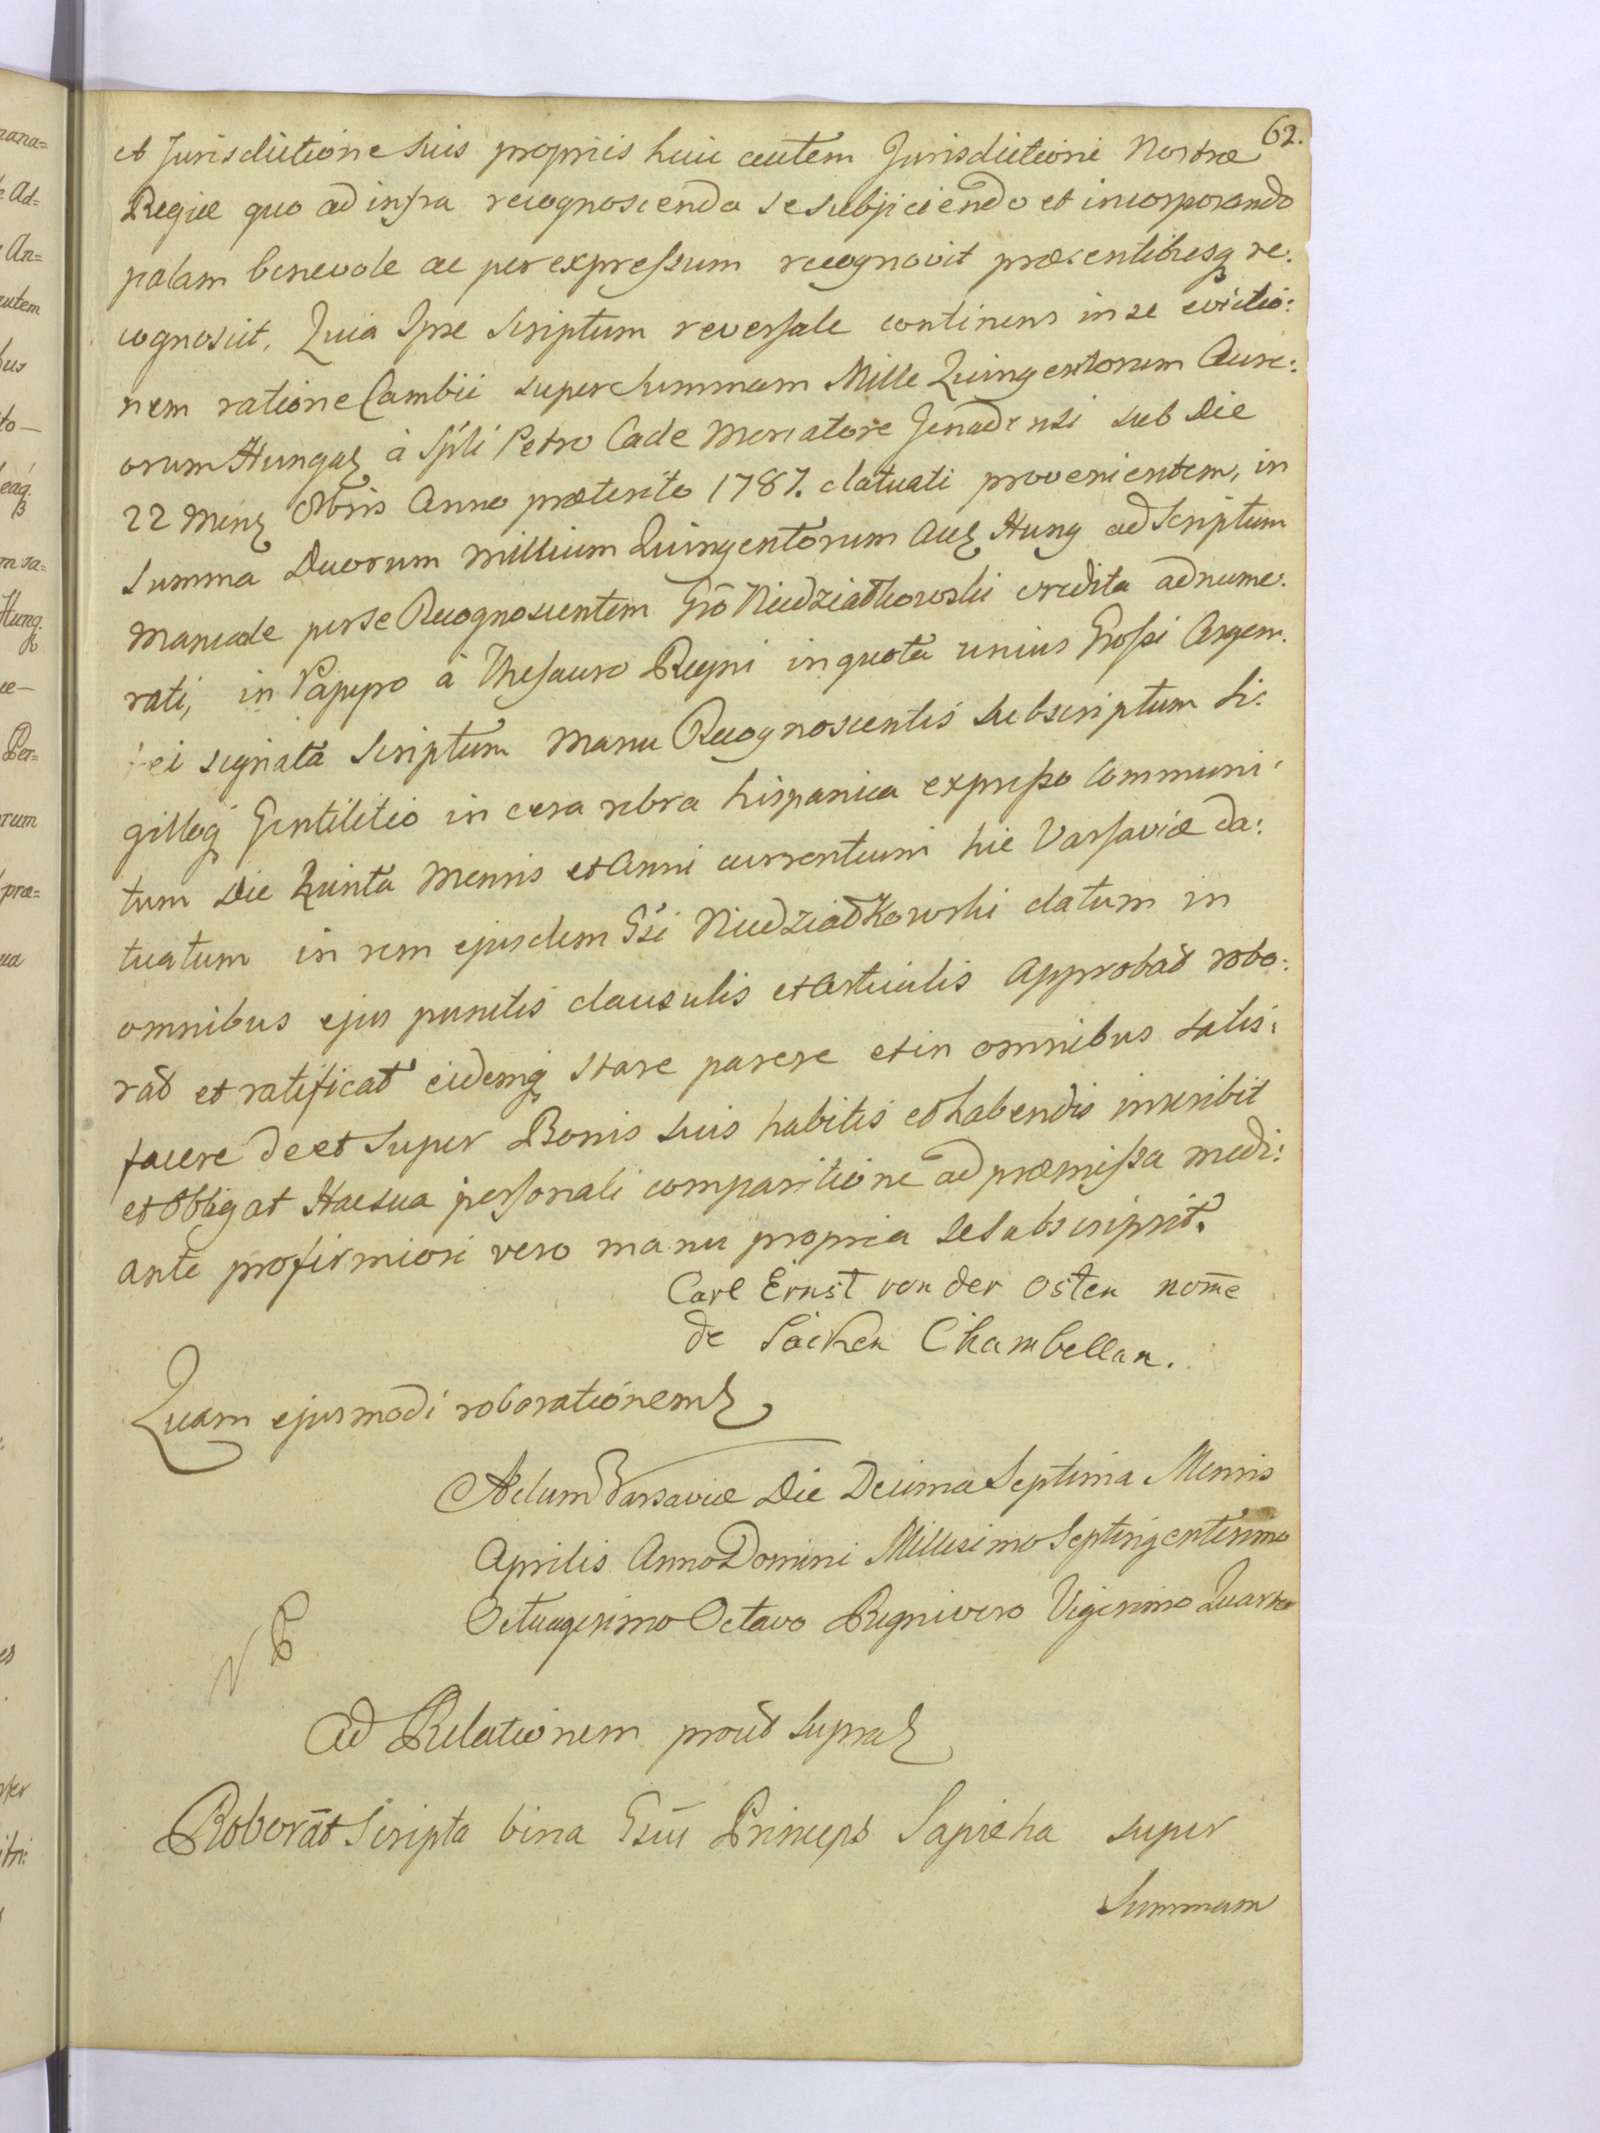 62.
et Jurisdictione suis propriis huic autem Jurisdictioni Nostræ
Regiæ quo ad infra recognoscenda se subjiciendo et incorporando
palam benevole ac per expressum recognovit præsentibusq re:
cognoscit, Quia Ipse Scriptum reversale continens in se evictio:
nem ratione Cambii super Summam Mille Quingentorum Aure:
orum Hungaz à Spli Petro Cade Mercatore Jenadensi sub Die
22 Menz Obris Anno præterito 1787. datuati provenientem, in
Summa Duorum Millium Quingentorum Auz Hung ad Scriptum
Manuale per se Recognoscentem Gō Niedziadkowski credita adnume:
rati, in Papyro à Thesauro Regni in quota unius Grossi Argen:
tei signata Scriptum Manu Recognoscentis subscriptum Si:
gilloq Gentilitio in cera rubra hispanica expresso communi:
tum Die Quinta Mensis et Anni currentium hic Varsaviæ da:
tuatum in rem ejusdem Gsi Niedziadkowski datum in
omnibus ejus punctis clausulis et Articulis Approbat robo:
rat et ratificat eidemq stare parere et in omnibus satis:
facere de et super Bonis suis habitis et habendis inscribit
et obligat Hac sua personali comparitione ad præmissa medi:
ante pro firmiori vero manu propria se subscripsit.
Carl Ernst von der Osten nom̄e
de Sacken Chambellan.
Quam ejusmodi roborationemz
Actum Varsaviæ Die Decima Septima Mensis
Aprilis Anno Domini Millesimo Septingentesimo
Octuagesimo Octavo Regni vero Vigesimo Quarto
Ad Relationem prout supraz
Roborat Scripta bina Gsūs Princeps Sapieha super
Summam